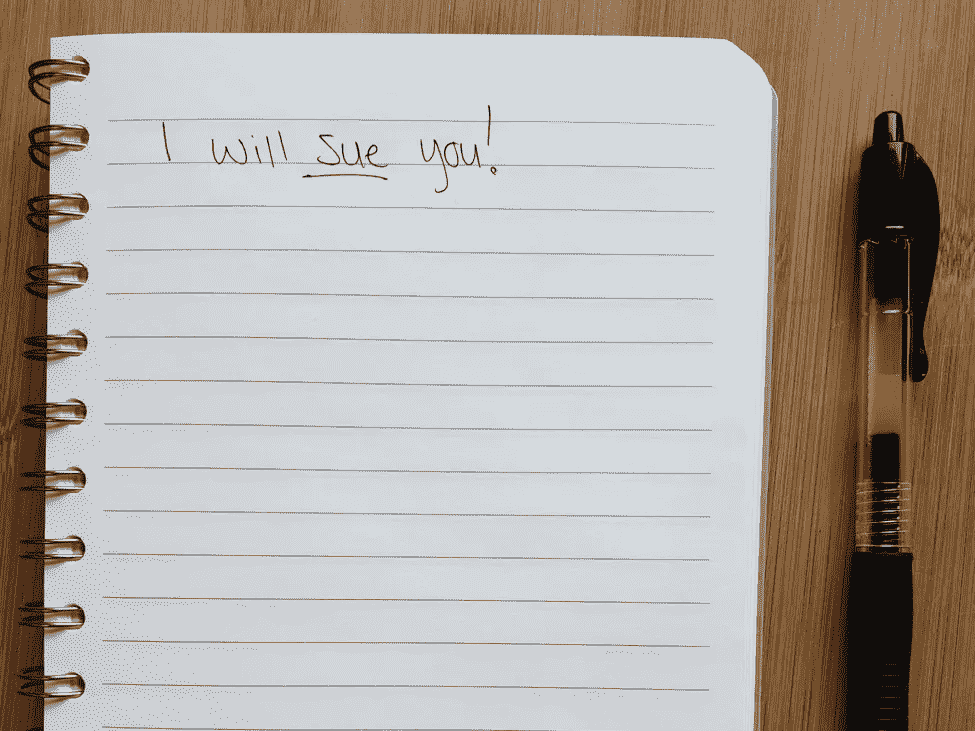 I will sue you!